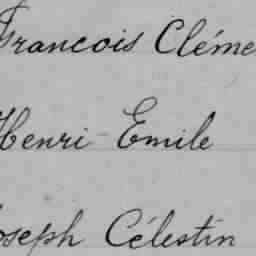 Francois Cléme
Henri Emile
oseph Célestin